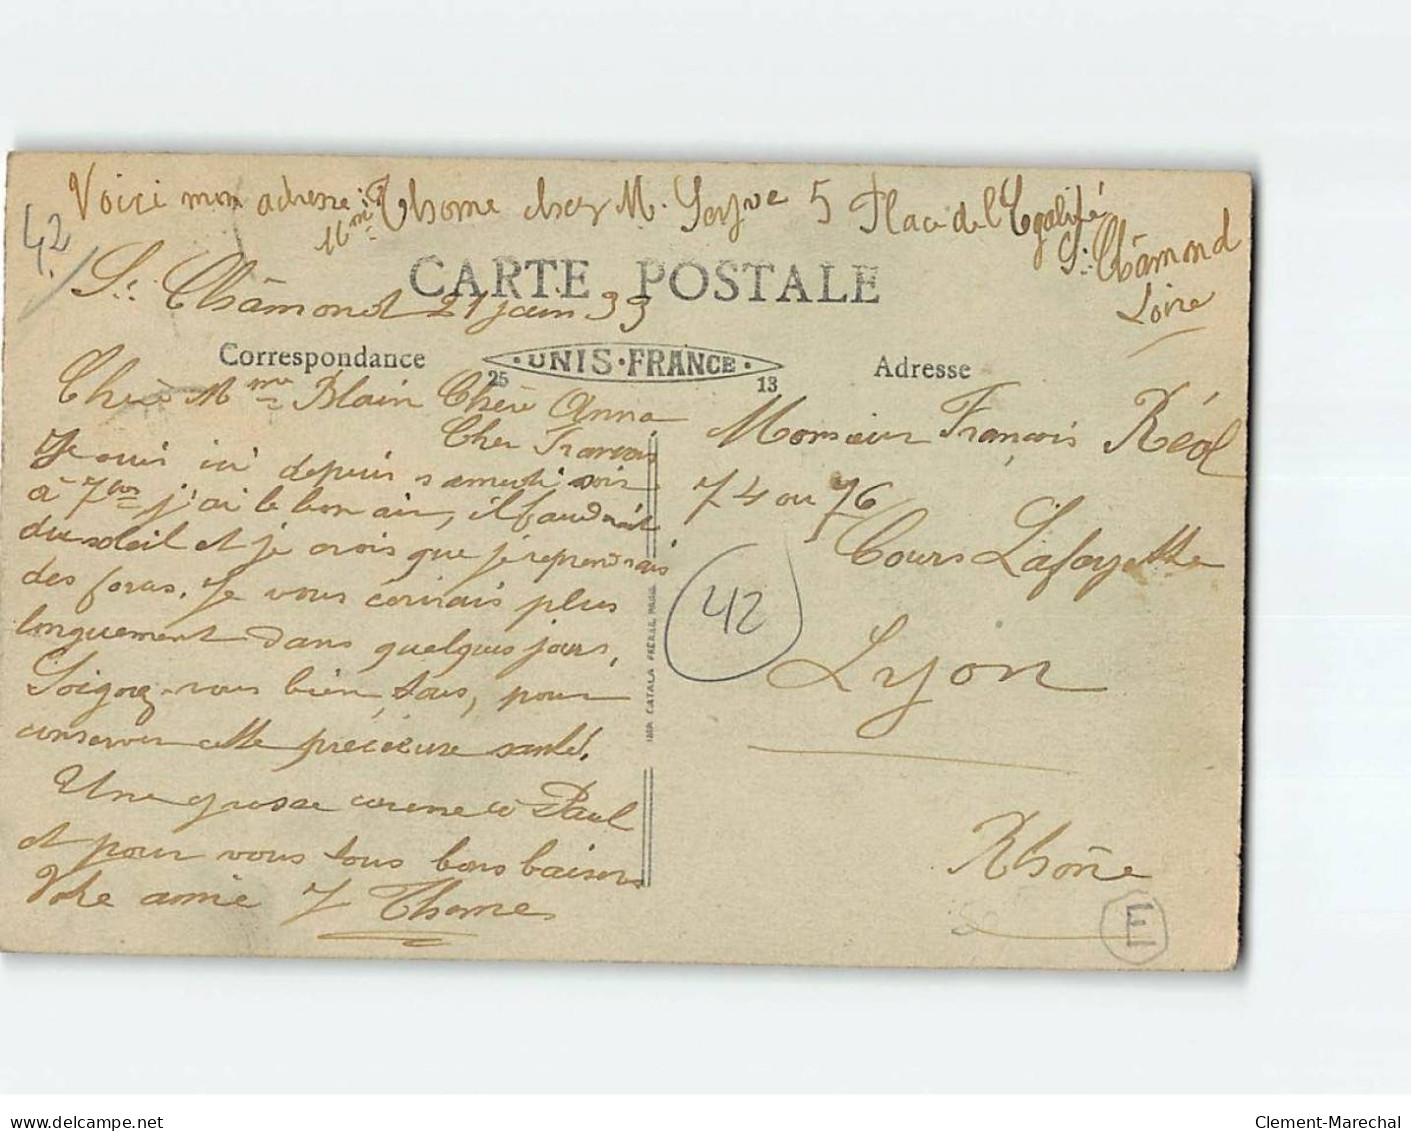 Voici mon adresse : Mme Thome chez M. 5 Place de l'Egalité
St Châmond
Loire
42
CARTE POSTALE
St Châmond 21 juin 33
Correspondance
UNIS-FRANCE
25
13
Adresse
Chère Mme Blain Chère Anna
Cher Francois
Je suis ici depuis samedi soir
à 7hrs j'ai le bon air, il faudrait
du soleil et je crois que je reprendrais
des forces. Je vous écrirais plus
longuement dans quelques jours,
Soignez-vous bien, tous, pour
conserver cette précieuse santé.
Une grosse caresse à Paul
et pour vous tous bons baisers
Votre amie J Thome
IMP. CATALA FRÈRES, PARIS
Monsieur François Réal
74 ou 76
Cours Lafayette
42
Lyon
Rhône
E
Delcampe.net
Clement-Marechal